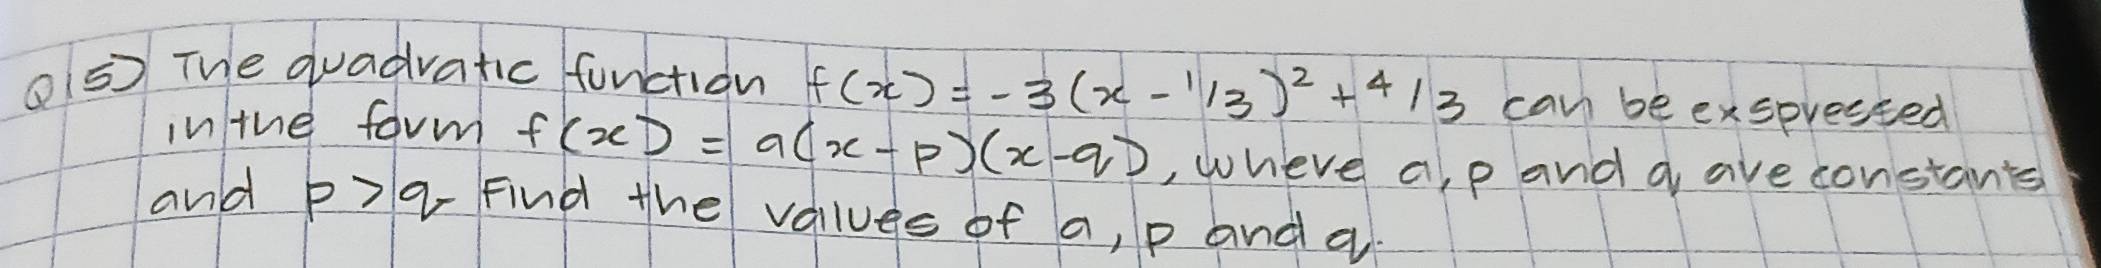 Q15) The quadratic function f(x) = -3(x - 1/3)² + 4/3 can be exspressed
in the form f(x) = a(x-p)(x-q), where a, p and q are constants
and p>q Find the values of a, p and q.